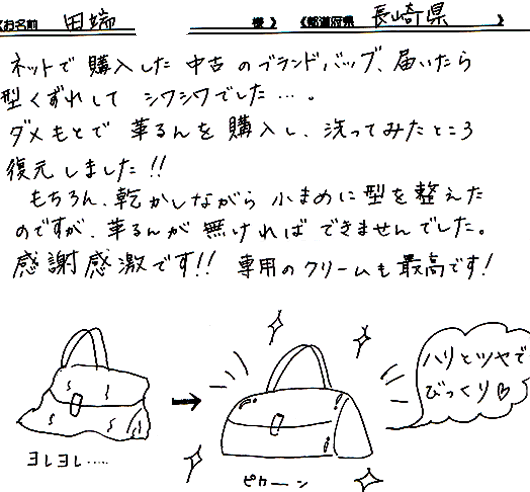 《お名前 田端 様》 《都道府県 長崎県 》
ネットで購入した中古のブランドバッグ、届いたら
型くずれしてシワシワでした…。
ダメもとで革るんを購入し、洗ってみたところ
復元しました!!
もちろん、乾かしながら小まめに型を整えた
のですが、革るんが無ければできませんでした。
感謝感激です!! 専用のクリームも最高です!
ハリとツヤで
びっくり♡
ヨレヨレ‥‥
ピカーン